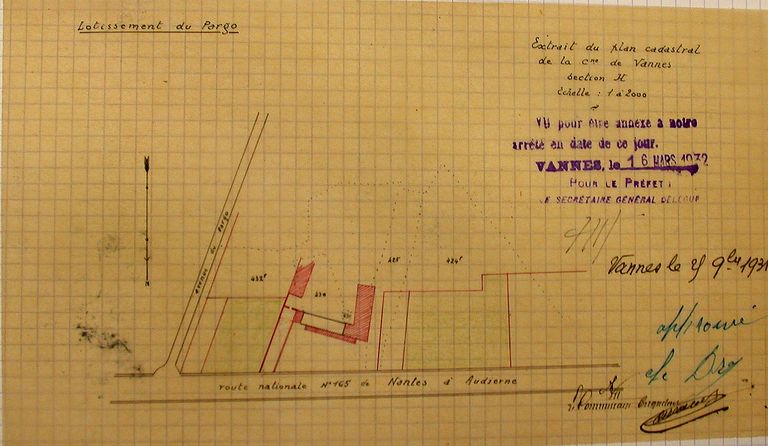 Lotissement du Pargo
Extrait du plan cadastral
de la Cne de Vannes
Section H
Echelle : 1 à 2000
VU pour être annexé à notre
arrêté en date de ce jour.
VANNES, le 16 MARS 1932
POUR LE PRÉFET :
LE SECRÉTAIRE GÉNÉRAL DÉLÉGUÉ
Vannes le 25 9bre 1931
approuvé
avenue du Pargo
432f
430
425
424f
N
route nationale N° 165 de Nantes à Audierne